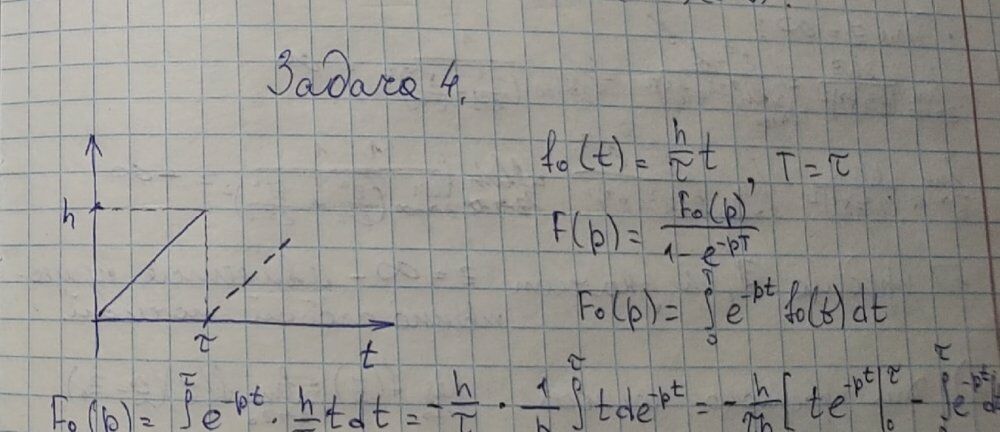 Задача 4.
f₀(t) = h/τ t, T = τ
h
F(p) = F₀(p)/(1 - e^(-pT))
F₀(p) = ∫₀^T e^(-pt) f₀(t) dt
τ
t
F₀(p) = ∫₀^τ e^(-pt) · h/τ t dt = - h/τ · 1/p ∫₀^τ t de^(-pt) = - h/τp [ te^(-pt) |₀^τ - ∫₀^τ e^(-pt) d